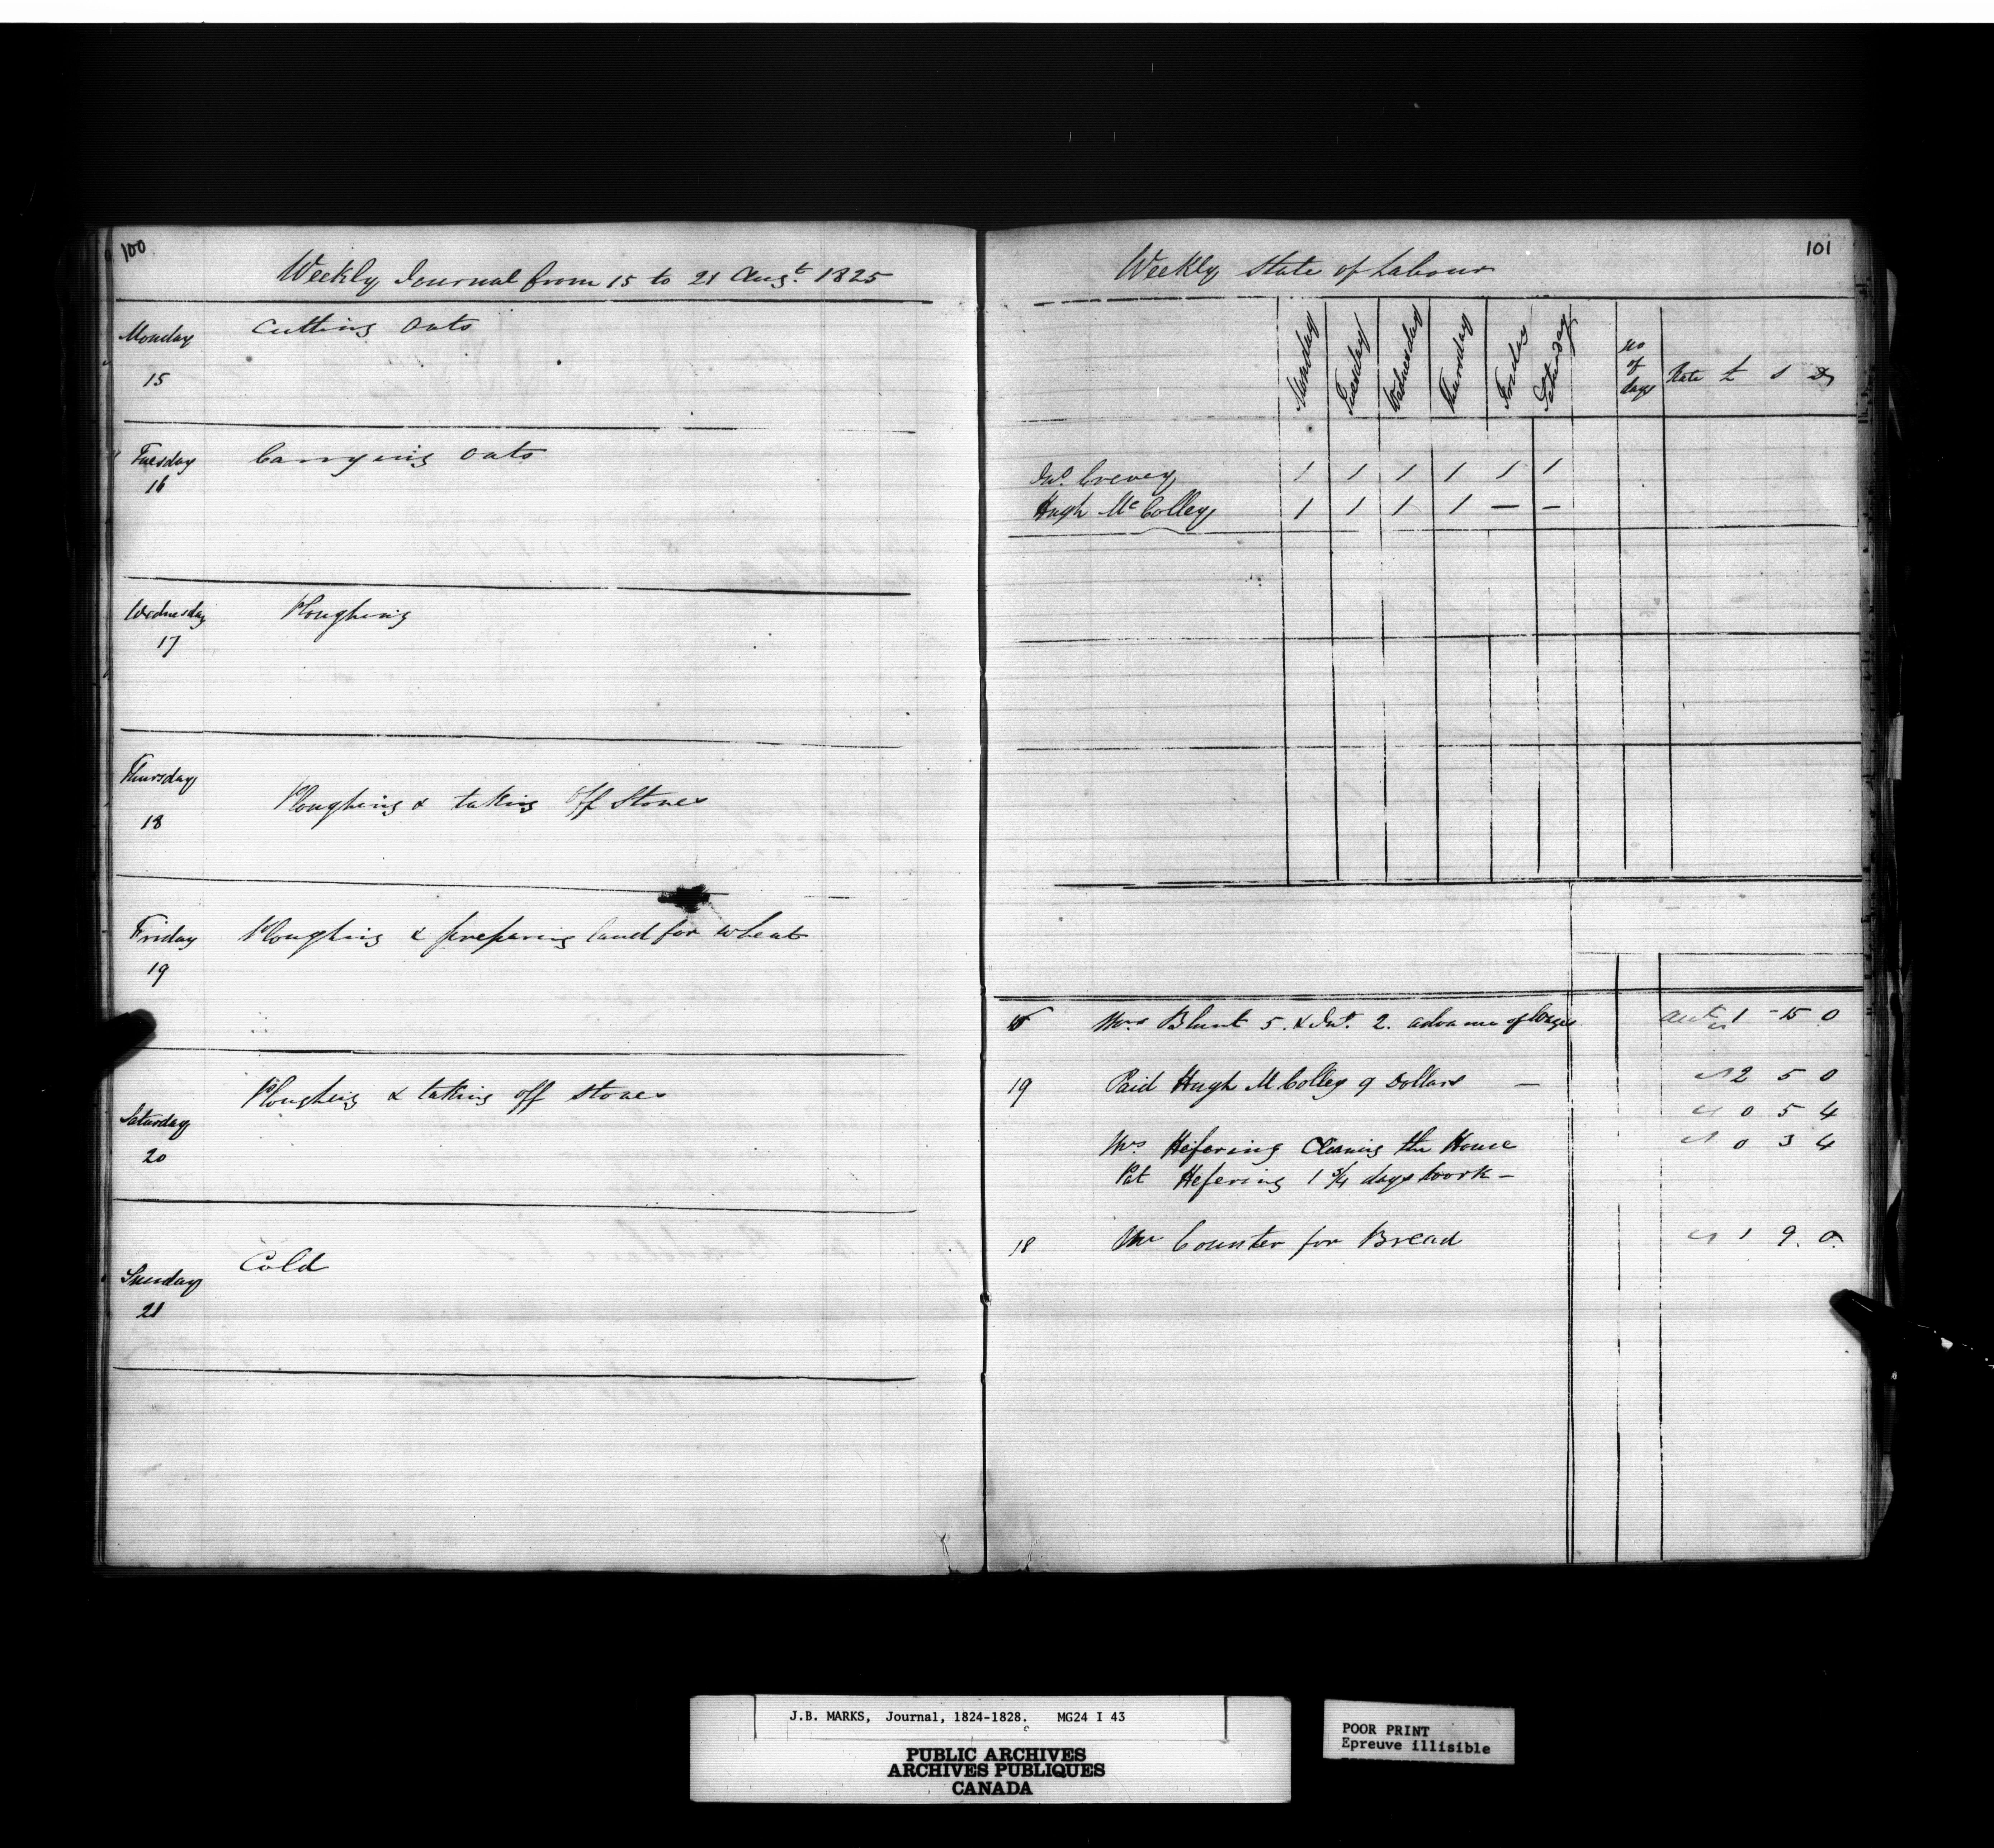 100
Weekly Journal from 15 to 21 Augt. 1825
Monday
15
Cutting Oats
Tuesday
16
Carrying Oats
Wednesday
17
Ploughing
Thursday
18
Ploughing & taking off Stones
Friday
19
Ploughing & preparing land for wheat
Saturday
20
Ploughing & taking off stones
Sunday
21
Cold
101
Weekly State of Labour
Monday Tuesday Wednesday Thursday Friday Saturday No of days Rate £ s D
Jno. Crevey 1 1 1 1 1 1
Hugh McColley 1 1 1 1 — —
Mrs Blunt 5. & Jno. 2. advance of Wages 1 - 15 0
19 Paid Hugh McColley 9 Dollars — 2 5 0
0 5 4
Mrs Hefering Cleaning the House 0 3 4
Pat Hefering 1 3/4 days work —
18 Mr Counter for Bread 1 9. 0.
J.B. MARKS, Journal, 1824-1828. MG24 I 43
PUBLIC ARCHIVES
ARCHIVES PUBLIQUES
CANADA
POOR PRINT
Epreuve illisible